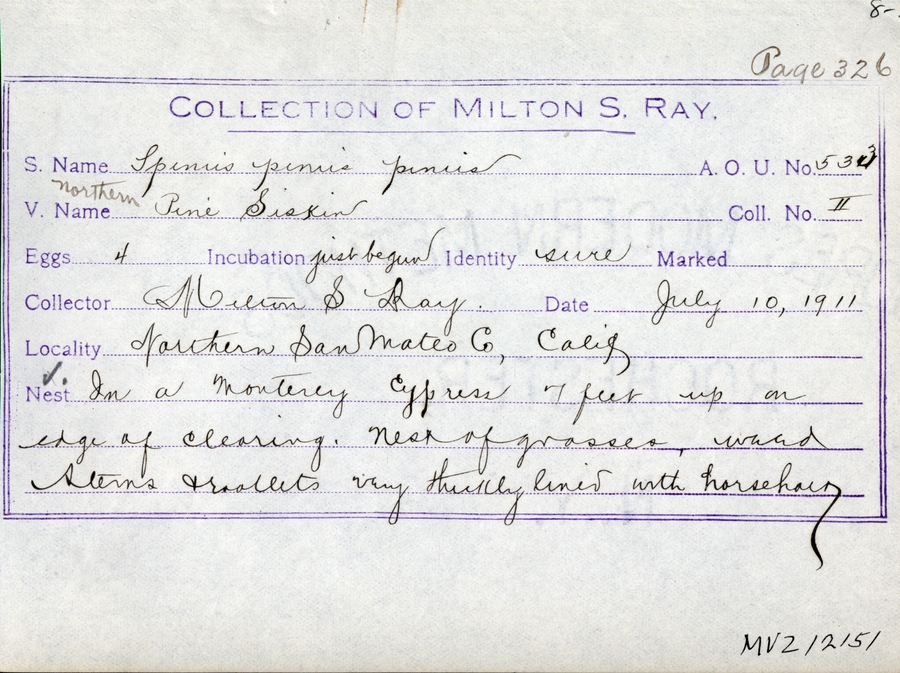 8-
Page 326
COLLECTION OF MILTON S. RAY.
S. Name Spinus pinus pinus A. O. U. No. 533
Northern
V. Name Pine Siskin Coll. No. II
Eggs 4 Incubation just begun Identity sure Marked
Collector Milton S Ray. Date July 10, 1911
Locality Northern San Mateo Co, Calif
✓.
Nest In a Monterey Cypress 7 feet up on
edge of clearing. Nest of grasses, weed
stems & rootlets very thickly lined with horsehair
MVZ 12151